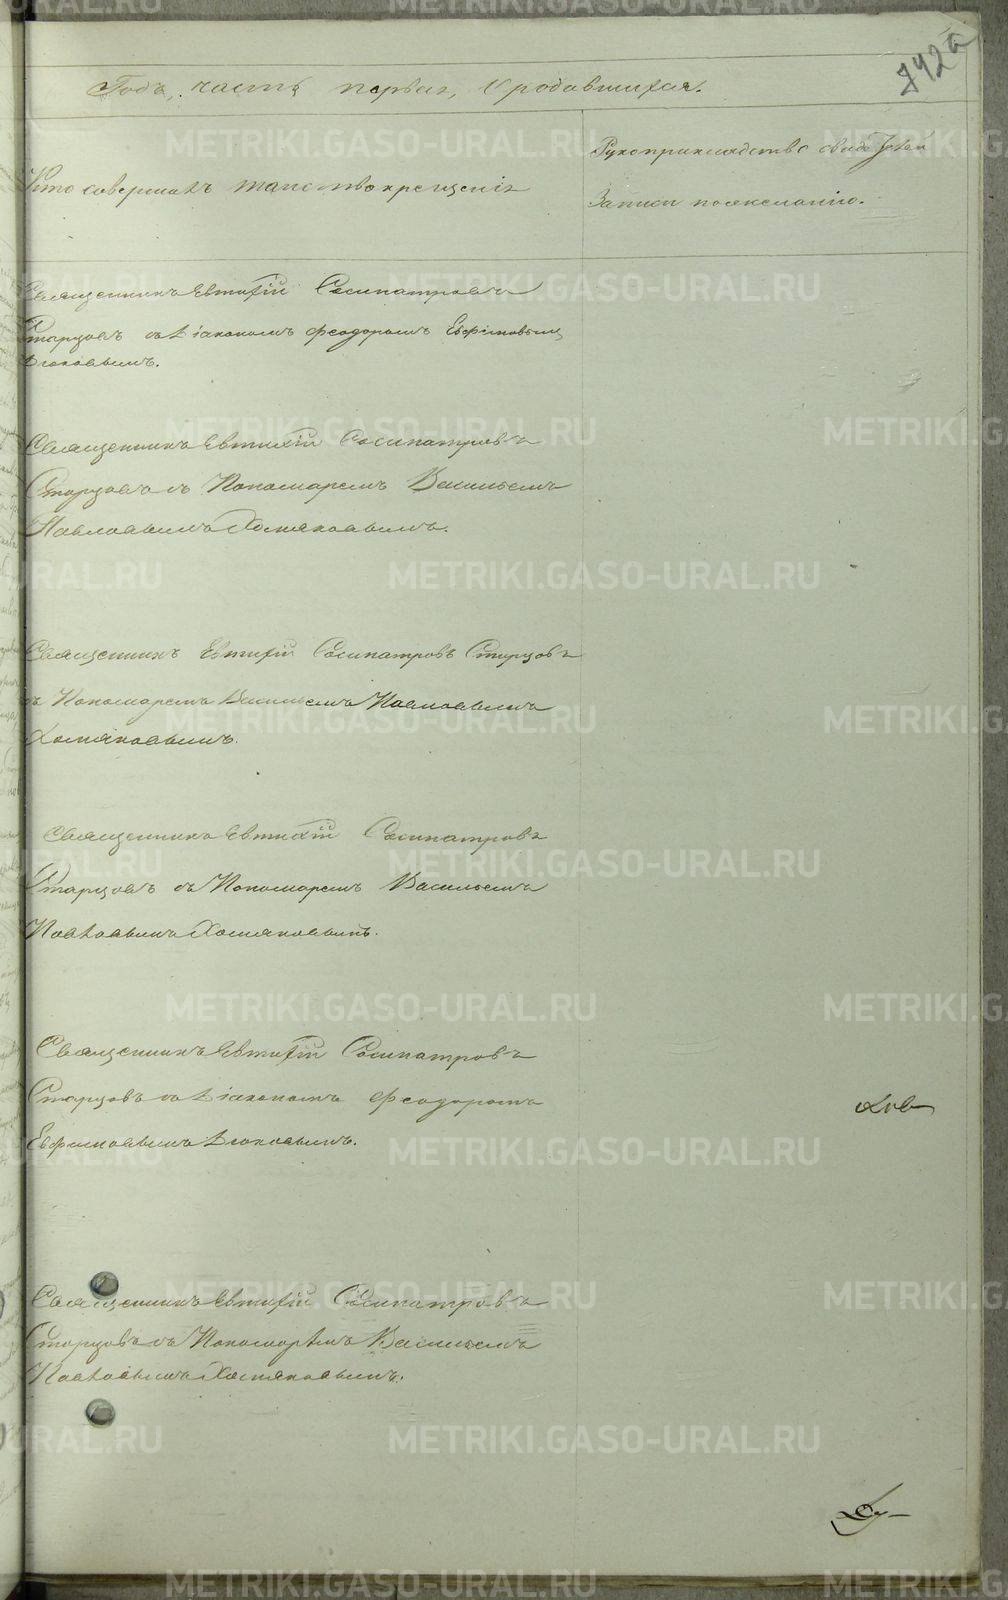 742а
Годъ, часть первая, о родившихся.
Кто совершалъ таинство крещенія
Рукоприкладство свидѣтелей
записи по желанію.
Священникъ Евтихій Сосипатровъ
Старцовъ съ Діакономъ Феодоромъ Евфимовымъ
Священникъ Евтихій Сосипатровъ
Старцовъ съ Пономаремъ Васильемъ
Павловымъ Хомяковымъ.
Священникъ Евтихій Сосипатровъ Старцовъ
съ Пономаремъ Васильемъ Павловымъ
Хомяковымъ.
Священникъ Евтихій Сосипатровъ
Старцовъ съ Пономаремъ Васильемъ
Павловымъ Хомяковымъ.
Священникъ Евтихій Сосипатровъ
Старцовъ съ Діакономъ Феодоромъ
Евфимовымъ
Священникъ Евтихій Сосипатровъ
Старцовъ съ Пономаремъ Васильемъ
Павловымъ Хомяковымъ.
METRIKI.GASO-URAL.RU